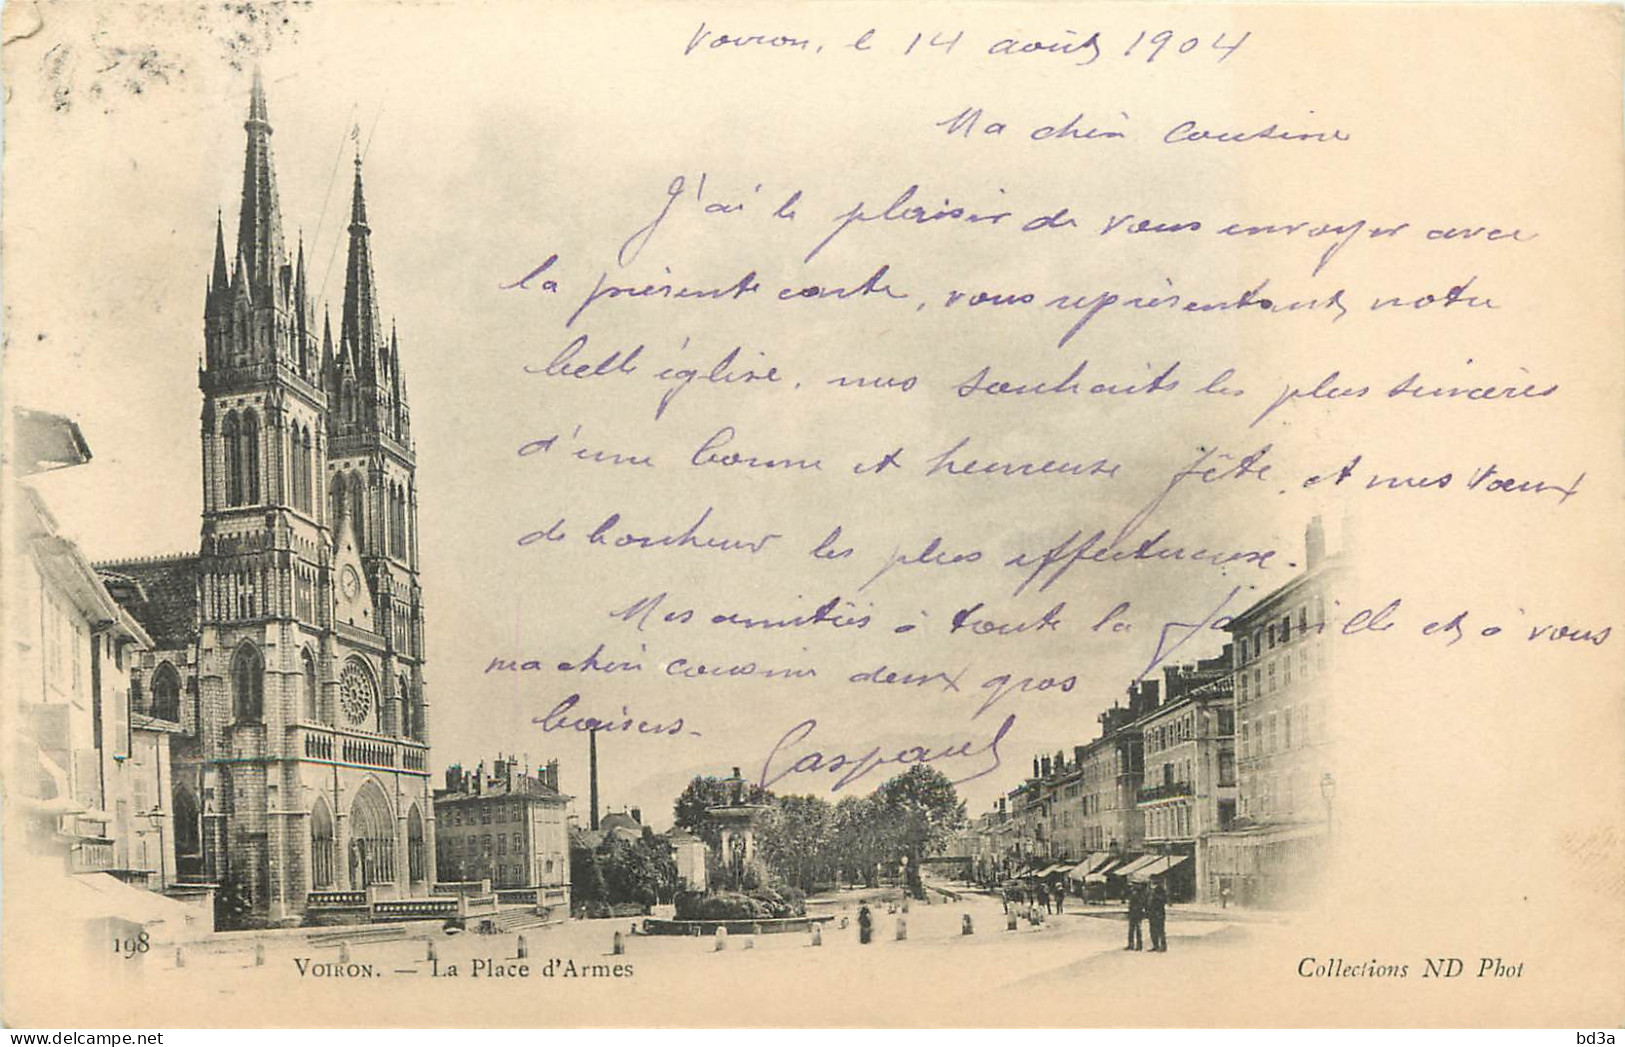 Voiron, le 14 août 1904
Ma chère Cousine
J'ai le plaisir de vous envoyer avec
la présente carte, vous représentant notre
belle église, mes souhaits les plus sincères
d'une bonne et heureuse fête, et mes vœux
de bonheur les plus affectueuse.
Mes amitiés à toute la famille et à vous
ma chère cousine deux gros
baisers.
Gaspard
198
VOIRON. — La Place d'Armes
Collections ND Phot
delcampe.net
bd3a